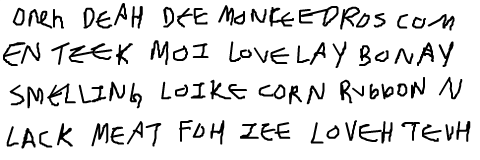 OneH DEAH DEE MONKEEDROS COM
EN TEEK MOI LOVELAY BONAY
SMELLING LOIKE CORN RUBBON N
LACK MEAT FOH ZEE LOVEH TEUH